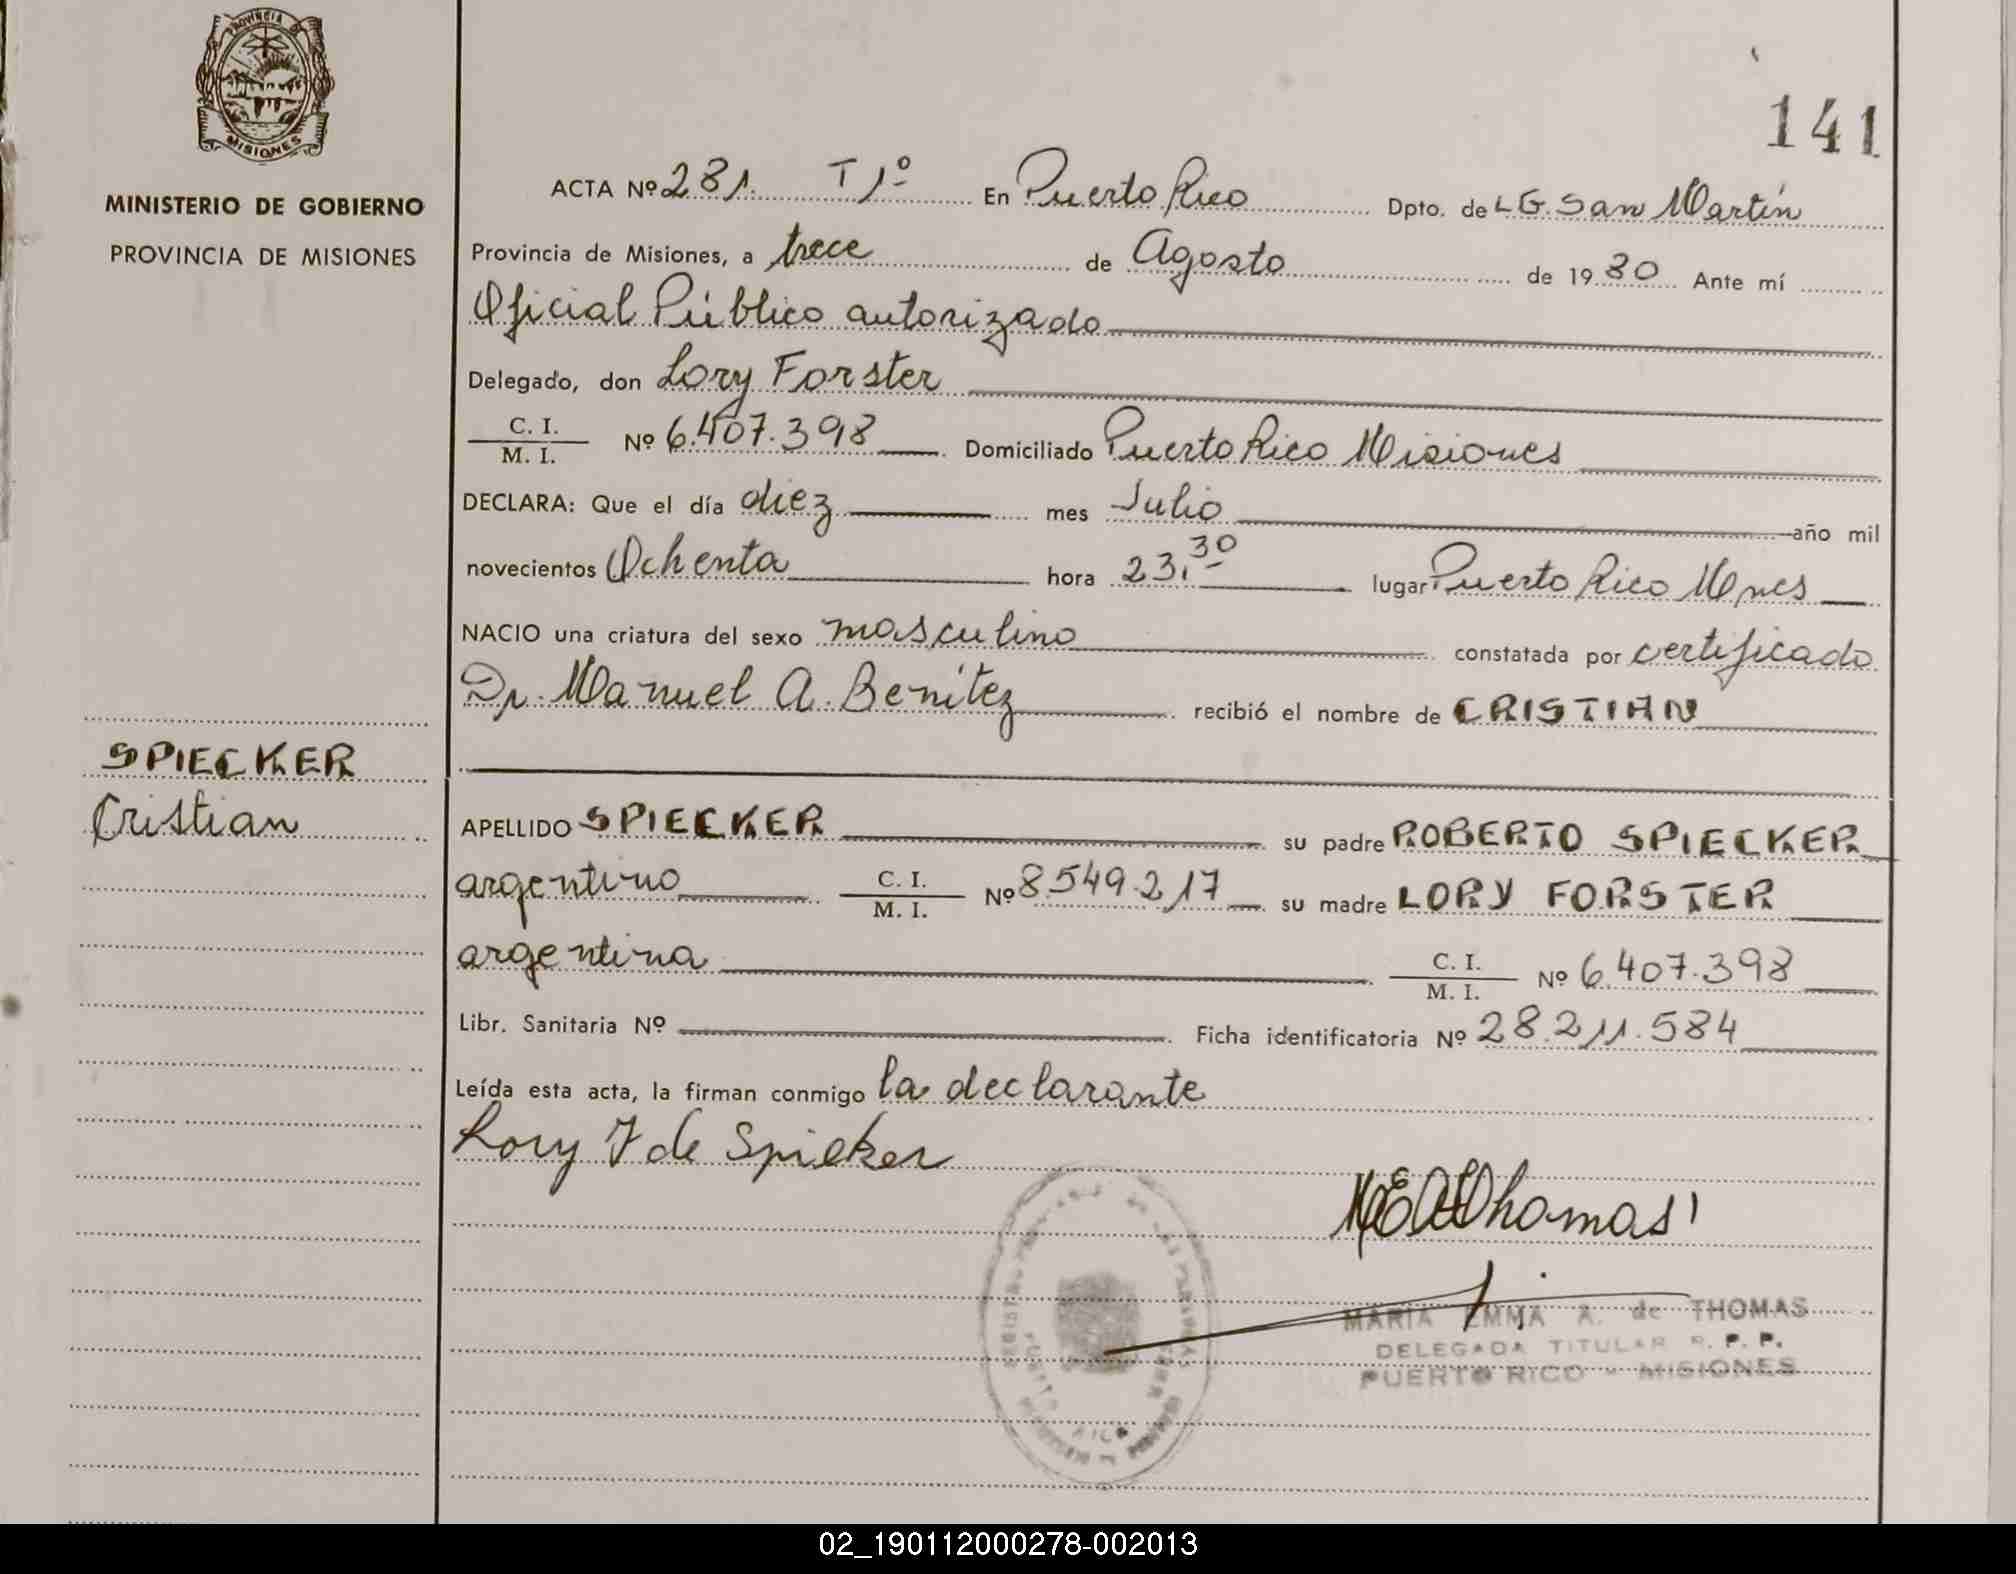 PROVINCIA DE
MISIONES
141
MINISTERIO DE GOBIERNO
PROVINCIA DE MISIONES
ACTA Nº 281. T 1º En Puerto Rico Dpto. de L G. San Martín
Provincia de Misiones, a trece de Agosto de 1980 Ante mí
Oficial Público autorizado
Delegado, don Lory Forster
C. I.
M. I. Nº 6.407.398 Domiciliado Puerto Rico Misiones
DECLARA: Que el día diez mes Julio año mil
novecientos Ochenta hora 23,30 lugar Puerto Rico Mnes
NACIO una criatura del sexo masculino constatada por certificado
Dr. Manuel A. Benítez recibió el nombre de CRISTIAN
SPIECKER
Cristian
APELLIDO SPIECKER su padre ROBERTO SPIECKER
argentino C. I.
M. I. Nº 8.549.217 su madre LORY FORSTER
argentina C. I.
M. I. Nº 6.407.398
Libr. Sanitaria Nº Ficha identificatoria Nº 28.211.584
Leída esta acta, la firman conmigo la declarante
Lory F de Spieker
MEAThomas
MARIA EMMA A. de THOMAS
DELEGADA TITULAR R. P. P.
PUERTO RICO - MISIONES
02_190112000278-002013